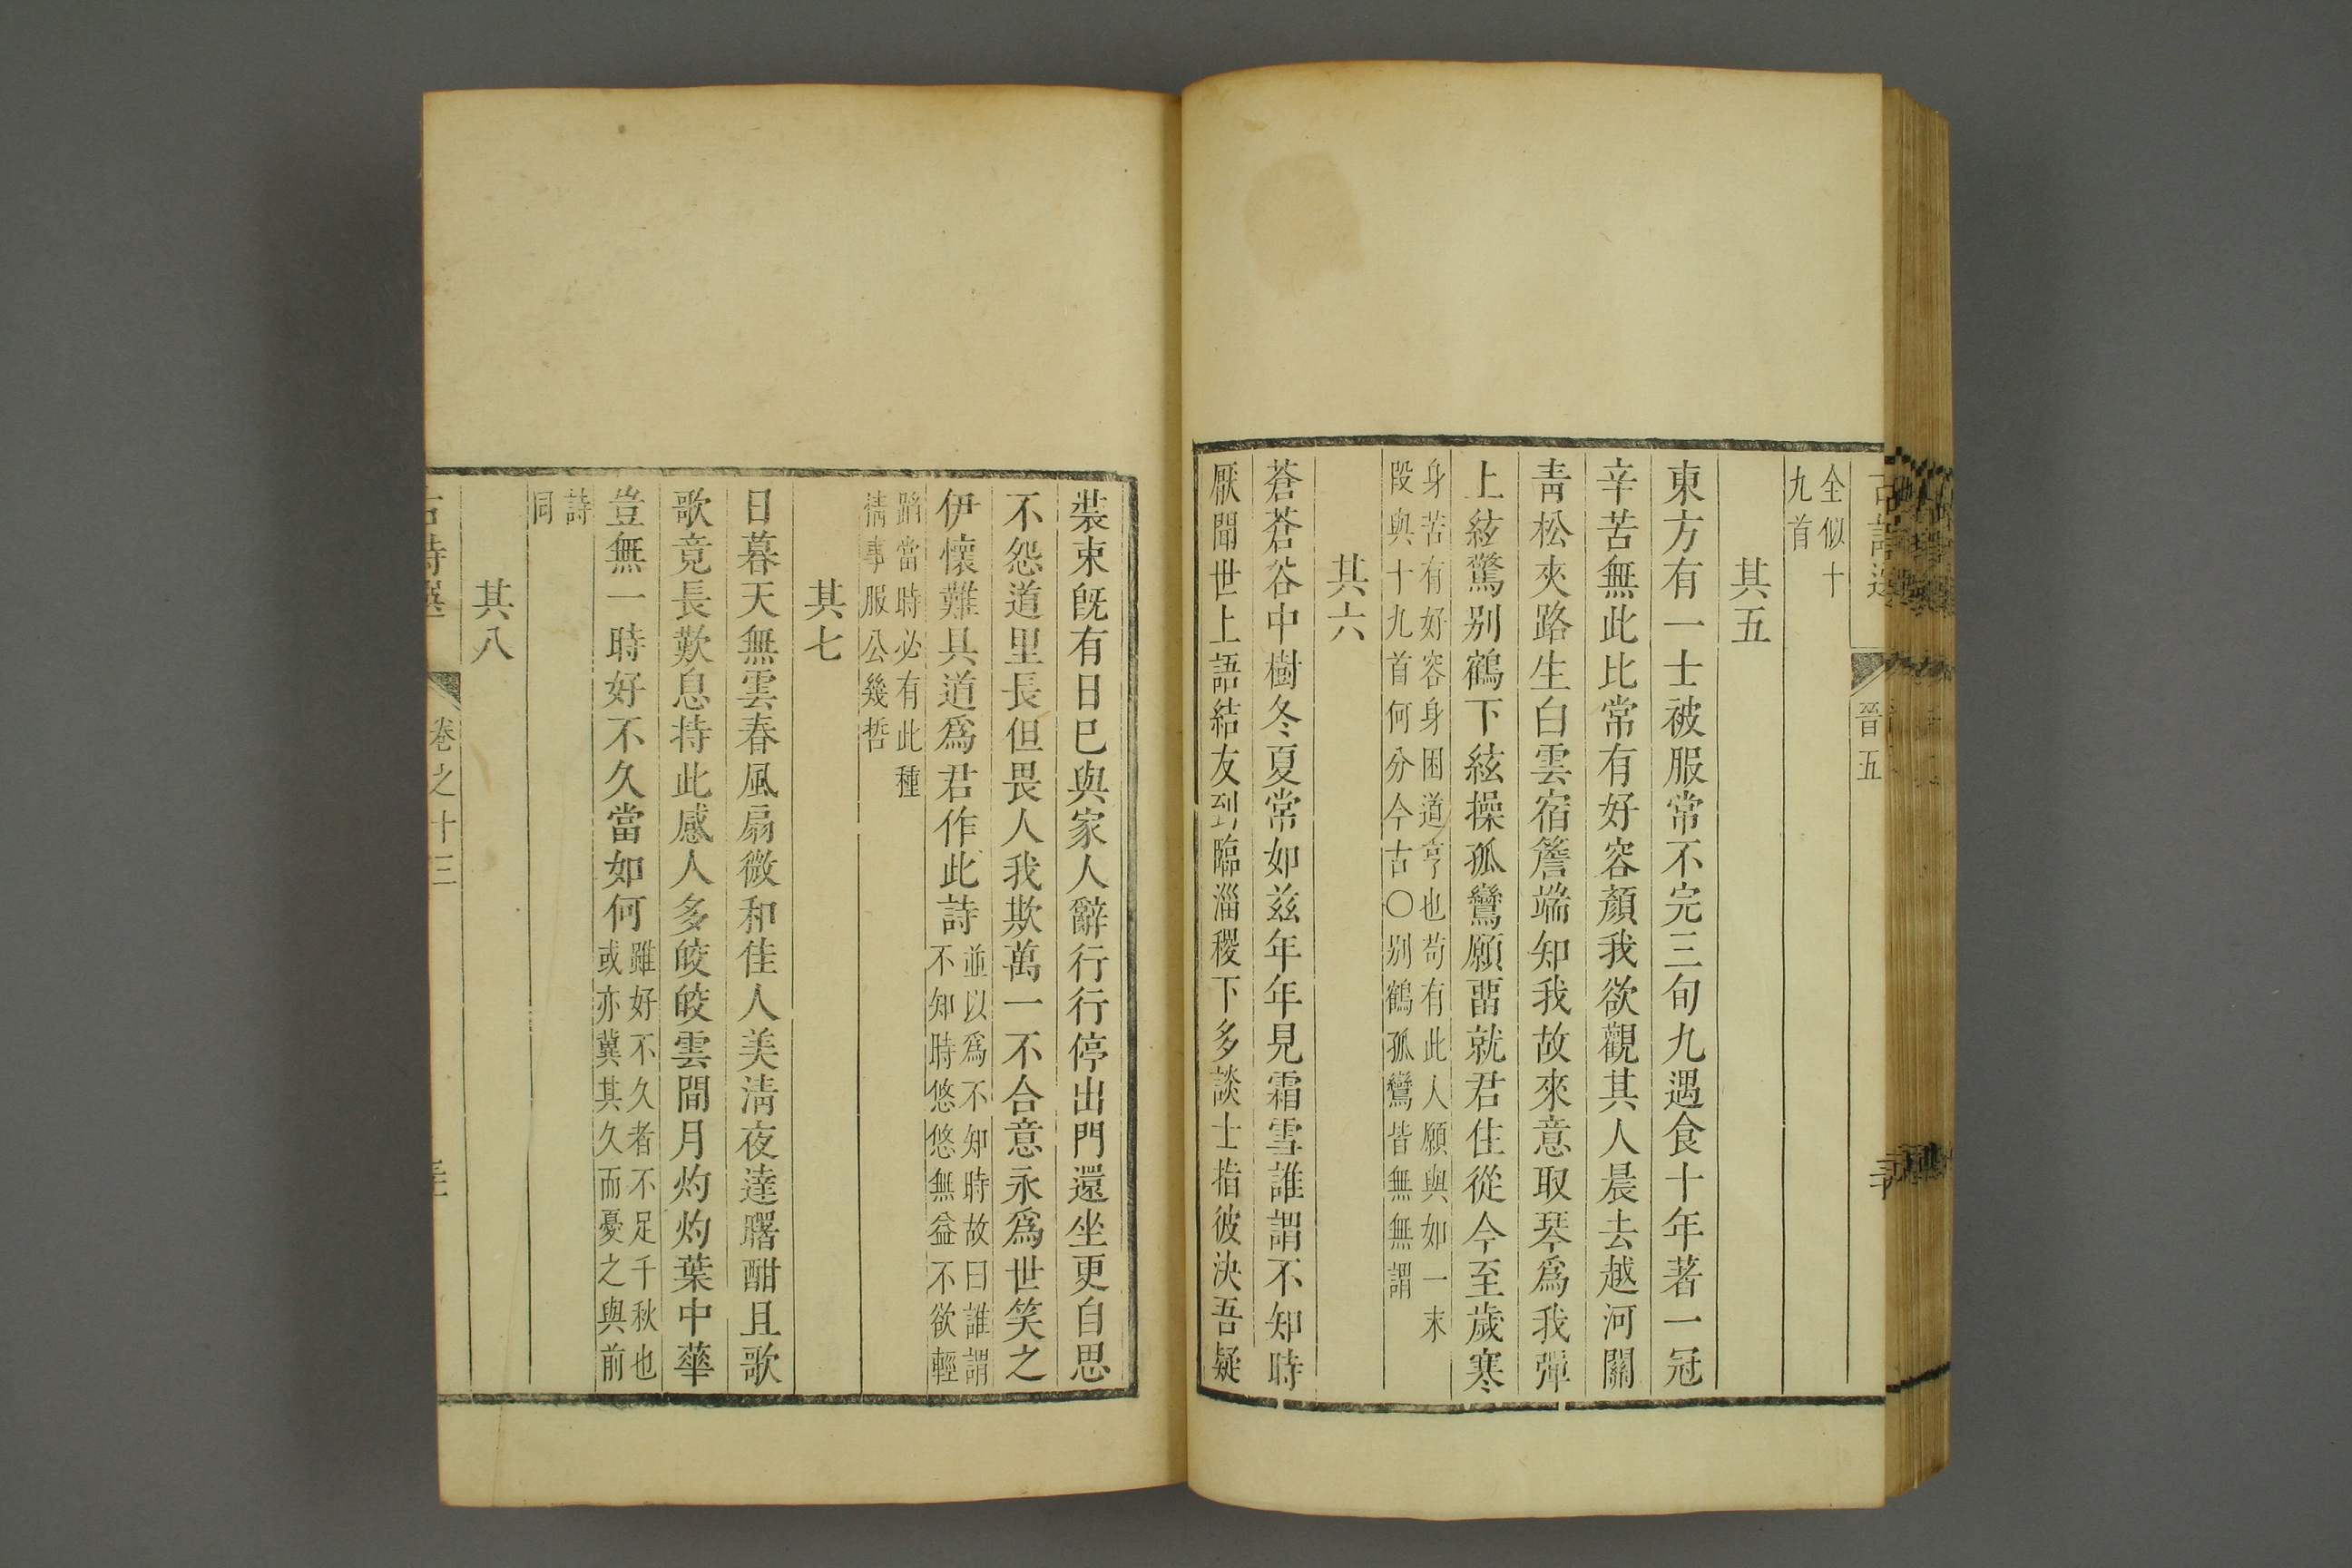 晉五
全似十
九首
其五
東方有一士被服常不完三旬九遇食十年著一冠
辛苦無此比常有好容顏我欲觀其人晨去越河關
靑松夾路生白雲宿簷端知我故來意取琴爲我彈
上絃驚別鶴下絃操孤鸞願畱就君住從今至歲寒
身苦有好容身困道亨也苟有此人願與如一末
段與十九首何分今古〇別鶴孤鸞皆無無謂
其六
蒼蒼谷中樹冬夏常如玆年年見霜雪誰謂不知時
厭聞世上語結友到臨淄稷下多談士指彼決吾疑
裝束旣有日巳與家人辭行行停出門還坐更自思
不怨道里長但畏人我欺萬一不合意永爲世笑之
伊懷難具道爲君作此詩
並以爲不知時故曰誰謂
不知時悠悠無益不欲輕
蹈當時必有此種
情事服公幾哲
其七
日暮天無雲春風扇微和佳人美淸夜達曙酣且歌
歌竟長歎息持此感人多皎皎雲間月灼灼葉中華
豈無一時好不久當如何
雖好不久者不足千秋也
或亦冀其久而憂之與前
詩
同
其八
古詩選 卷之十三